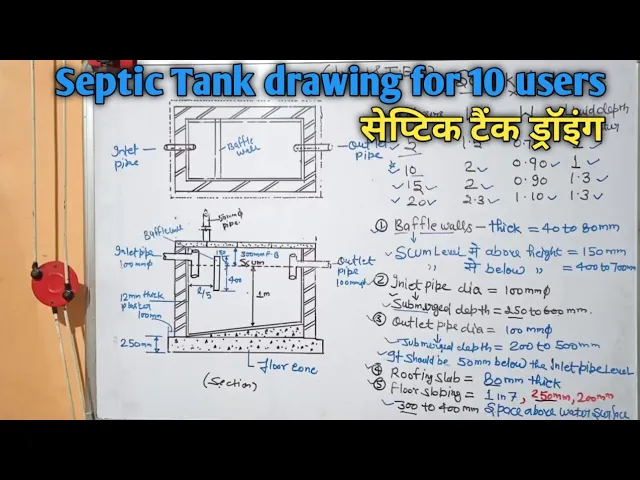 Septic Tank drawing for 10 users
सेप्टिक टैंक ड्रॉइंग
Inlet pipe
Baffle wall
Outlet pipe
10 2 0.90 1
15 2 0.90 1.3
20 2.3 1.10 1.3
50mmφ pipe
Baffle wall
Inlet pipe
100mmφ
150
300mm F.B
Scum
400
L/5
1m
Outlet pipe
100mmφ
12mm thick plaster
100mm
250mm
floor conc
(Section)
① Baffle walls - thick = 40 to 80mm
Scum Level में above height = 150mm
" में below " = 400 to 700mm
② Inlet pipe dia = 100mmφ
Submerged depth = 250 to 600mm.
③ Outlet pipe dia = 100mmφ
Submerged depth = 200 to 500mm
It should be 50mm below the Inlet pipe Level
④ Roofing slab = 80mm thick
⑤ Floor sloping = 1 in 7, 250mm, 200mm
300 to 400mm space above water surface